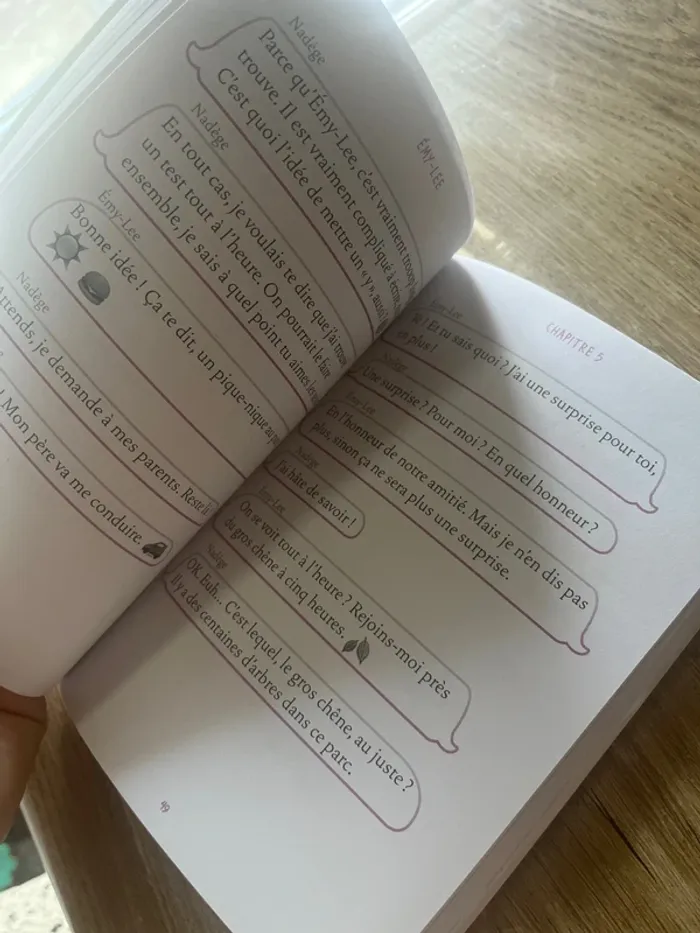 ÉMY-LEE
Nadège
Parce qu'Émy-Lee, c'est vraiment
trouve. Il est vraiment compliqué à
C'est quoi l'idée de mettre un « y », aussi
Nadège
En tout cas, je voulais te dire que j'ai
un test tout à l'heure. On pourrait le faire
ensemble, je sais à quel point tu aimes
Émy-Lee
Bonne idée ! Ça te dit, un pique-nique au
Nadège
Attends, je demande à mes parents. Reste
! Mon père va me conduire.
CHAPITRE 5
Émy-Lee
! Et tu sais quoi ? J'ai une surprise pour toi,
en plus !
Nadège
Une surprise ? Pour moi ? En quel honneur ?
Émy-Lee
En l'honneur de notre amitié. Mais je n'en dis pas
plus, sinon ça ne sera plus une surprise.
Nadège
J'ai hâte de savoir !
Émy-Lee
On se voit tout à l'heure ? Rejoins-moi près
du gros chêne à cinq heures.
Nadège
OK. Euh... C'est lequel, le gros chêne, au juste ?
Il y a des centaines d'arbres dans ce parc.
49